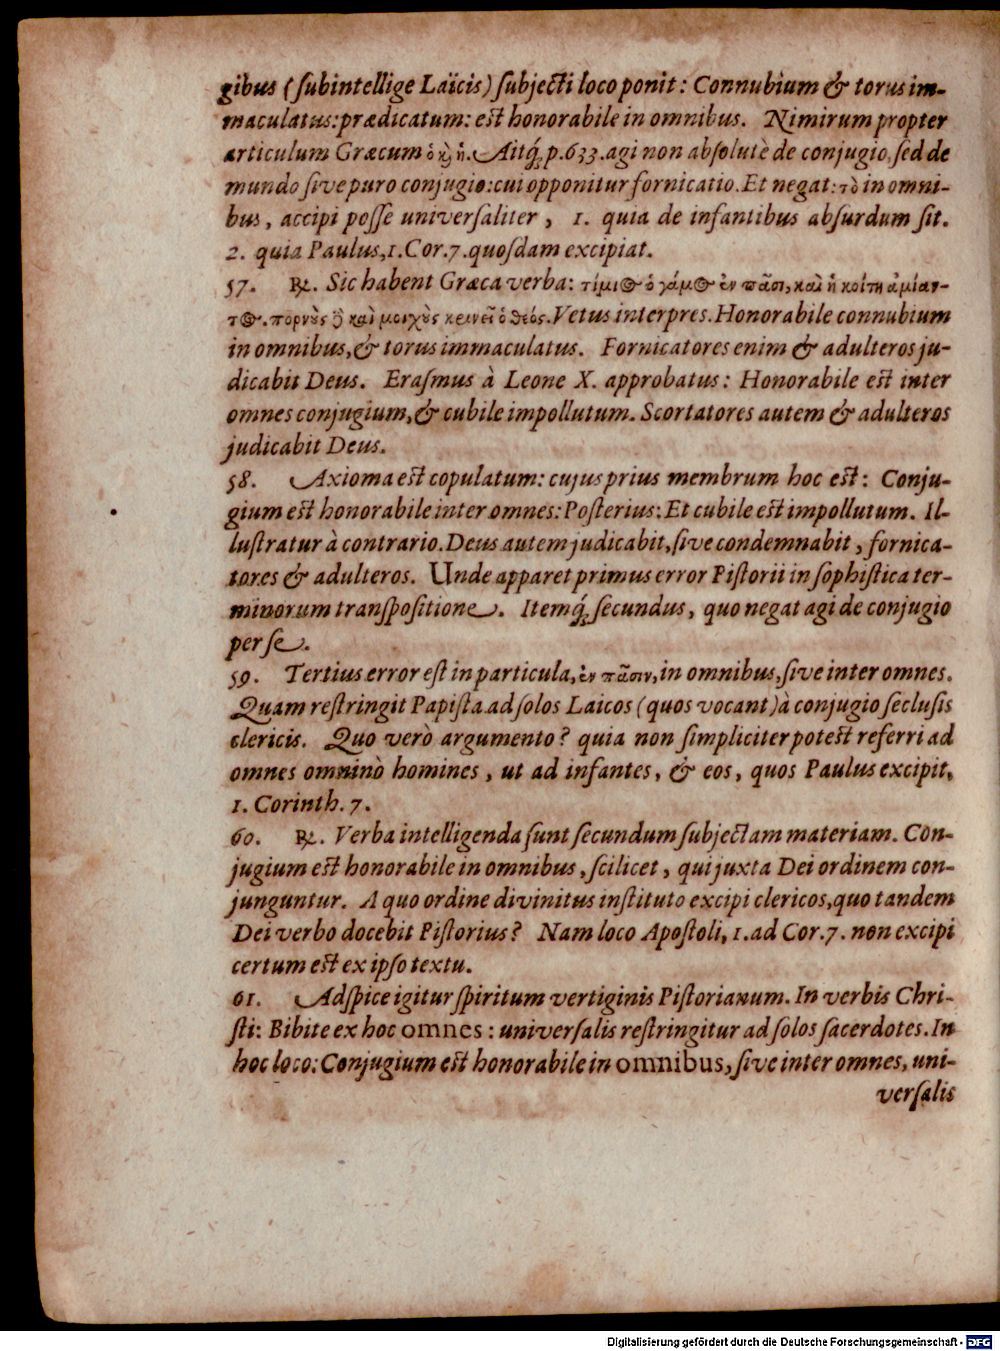 gibus (subintellige Laïcis) subjecti loco ponit: Connubium & torus im-
maculatus: prædicatum: est honorabile in omnibus. Nimirum propter
articulum Græcum ὁ κ̀ ἡ. Aitq́; p. 633. agi non absolutè de conjugio, sed de
mundo sive puro conjugio: cui opponitur fornicatio. Et negat: τὸ in omni-
bus, accipi posse universaliter, 1. quia de infantibus absurdum sit.
2. quia Paulus, 1. Cor. 7. quosdam excipiat.
57. ℞. Sic habent Græca verba: τίμι⊙ ὁ γάμ⊙ ἐν πᾶσι, καὶ ἡ κοίτη ἀμίαν-
τ⊙. πόρνȣς ὃ καὶ μοιχȣ̀ς κρινεῖ ὁ θεός. Vetus interpres. Honorabile connubium
in omnibus, & torus immaculatus. Fornicatores enim & adulteros ju-
dicabit Deus. Erasmus à Leone X. approbatus: Honorabile est inter
omnes conjugium, & cubile impollutum. Scortatores autem & adulteros
judicabit Deus.
58. Axioma est copulatum: cujus prius membrum hoc est: Conju-
gium est honorabile inter omnes: Posterius: Et cubile est impollutum. Il-
lustratur à contrario. Deus autem judicabit, sive condemnabit, fornica-
tores & adulteros. Unde apparet primus error Pistorii in sophistica ter-
minorum transpositione. Itemq́; secundus, quo negat agi de conjugio
per se.
59. Tertius error est in particula, ἐν πᾶσιν, in omnibus, sive inter omnes.
Quam restringit Papista ad solos Laicos (quos vocant) à conjugio seclusis
clericis. Quo verò argumento? quia non simpliciter potest referri ad
omnes omninò homines, ut ad infantes, & eos, quos Paulus excipit,
1. Corinth. 7.
60. ℞. Verba intelligenda sunt secundum subjectam materiam. Con-
jugium est honorabile in omnibus, scilicet, qui juxta Dei ordinem con-
junguntur. A quo ordine divinitus instituto excipi clericos, quo tandem
Dei verbo docebit Pistorius? Nam loco Apostoli, 1. ad Cor. 7. non excipi
certum est ex ipso textu.
61. Adspice igitur spiritum vertiginis Pistorianum. In verbis Chri-
sti: Bibite ex hoc omnes: universalis restringitur ad solos sacerdotes. In
hoc loco: Conjugium est honorabile in omnibus, sive inter omnes, uni-
versalis
Digitalisierung gefördert durch die Deutsche Forschungsgemeinschaft - DFG